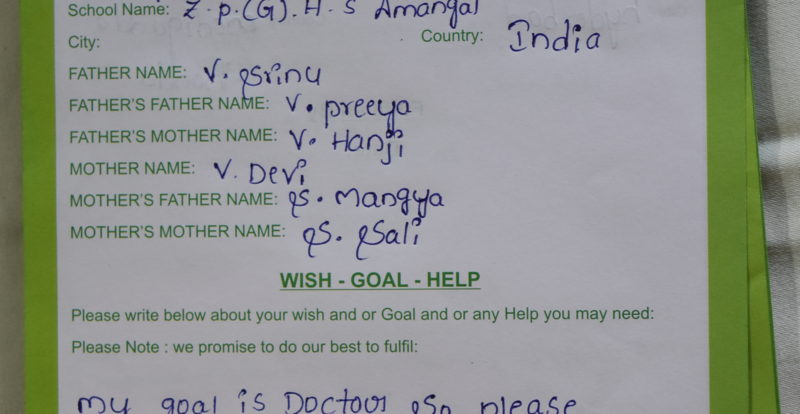 School Name: Z.P.(G).H.S Amangal
City: Country: India
FATHER NAME: V. Srinu
FATHER'S FATHER NAME: V. preeya
FATHER'S MOTHER NAME: V. Hanji
MOTHER NAME: V. Devi
MOTHER'S FATHER NAME: S. Mangya
MOTHER'S MOTHER NAME: S. Sali
WISH - GOAL - HELP
Please write below about your wish and or Goal and or any Help you may need:
Please Note : we promise to do our best to fulfil:
my goal is Doctour So please